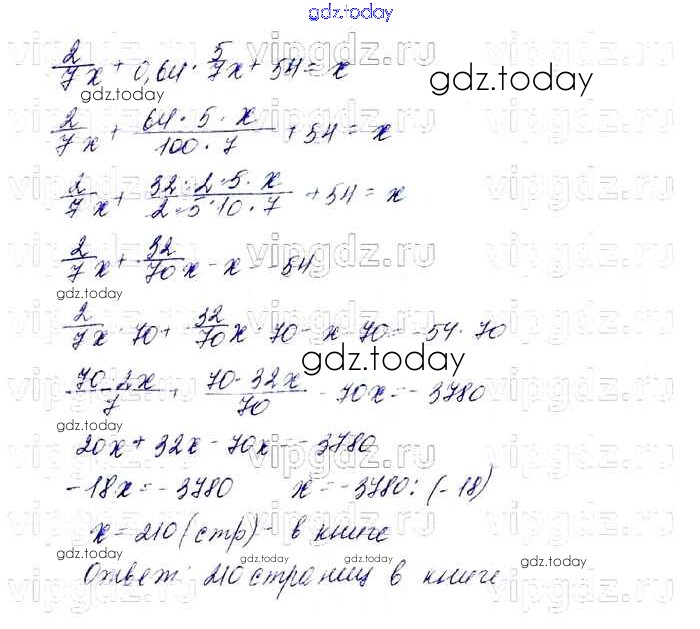 gdz.today
2/7 x + 0,64 · 5/7 x + 54 = x
gdz.today
gdz.today
2/7 x + 64 · 5 · x / 100 · 7 + 54 = x
gdz.today
2/7 x + 32 · 2 · 5 · x / 2 · 5 · 10 · 7 + 54 = x
2/7 x + 32/70 x - x = -54
gdz.today
2/7 x · 70 + 32/70 x · 70 - x · 70 = -54 · 70
gdz.today
70 · 2x / 7 + 70 · 32x / 70 - 70x = -3780
20x + 32x - 70x = -3780
-18x = -3780 x = -3780 : (-18)
x = 210 (стр) - в книге
gdz.today gdz.today gdz.today
Ответ: 210 страниц в книге
vipgdz.ru